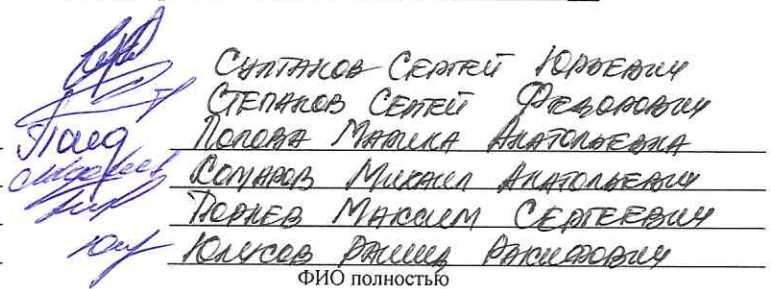 Султанов Сергей Юрьевич
Степанов Сергей Федорович
Попова Марина Анатольевна
Комаров Михаил Анатольевич
Максим Сергеевич
Юнусов Рашид
ФИО полностью